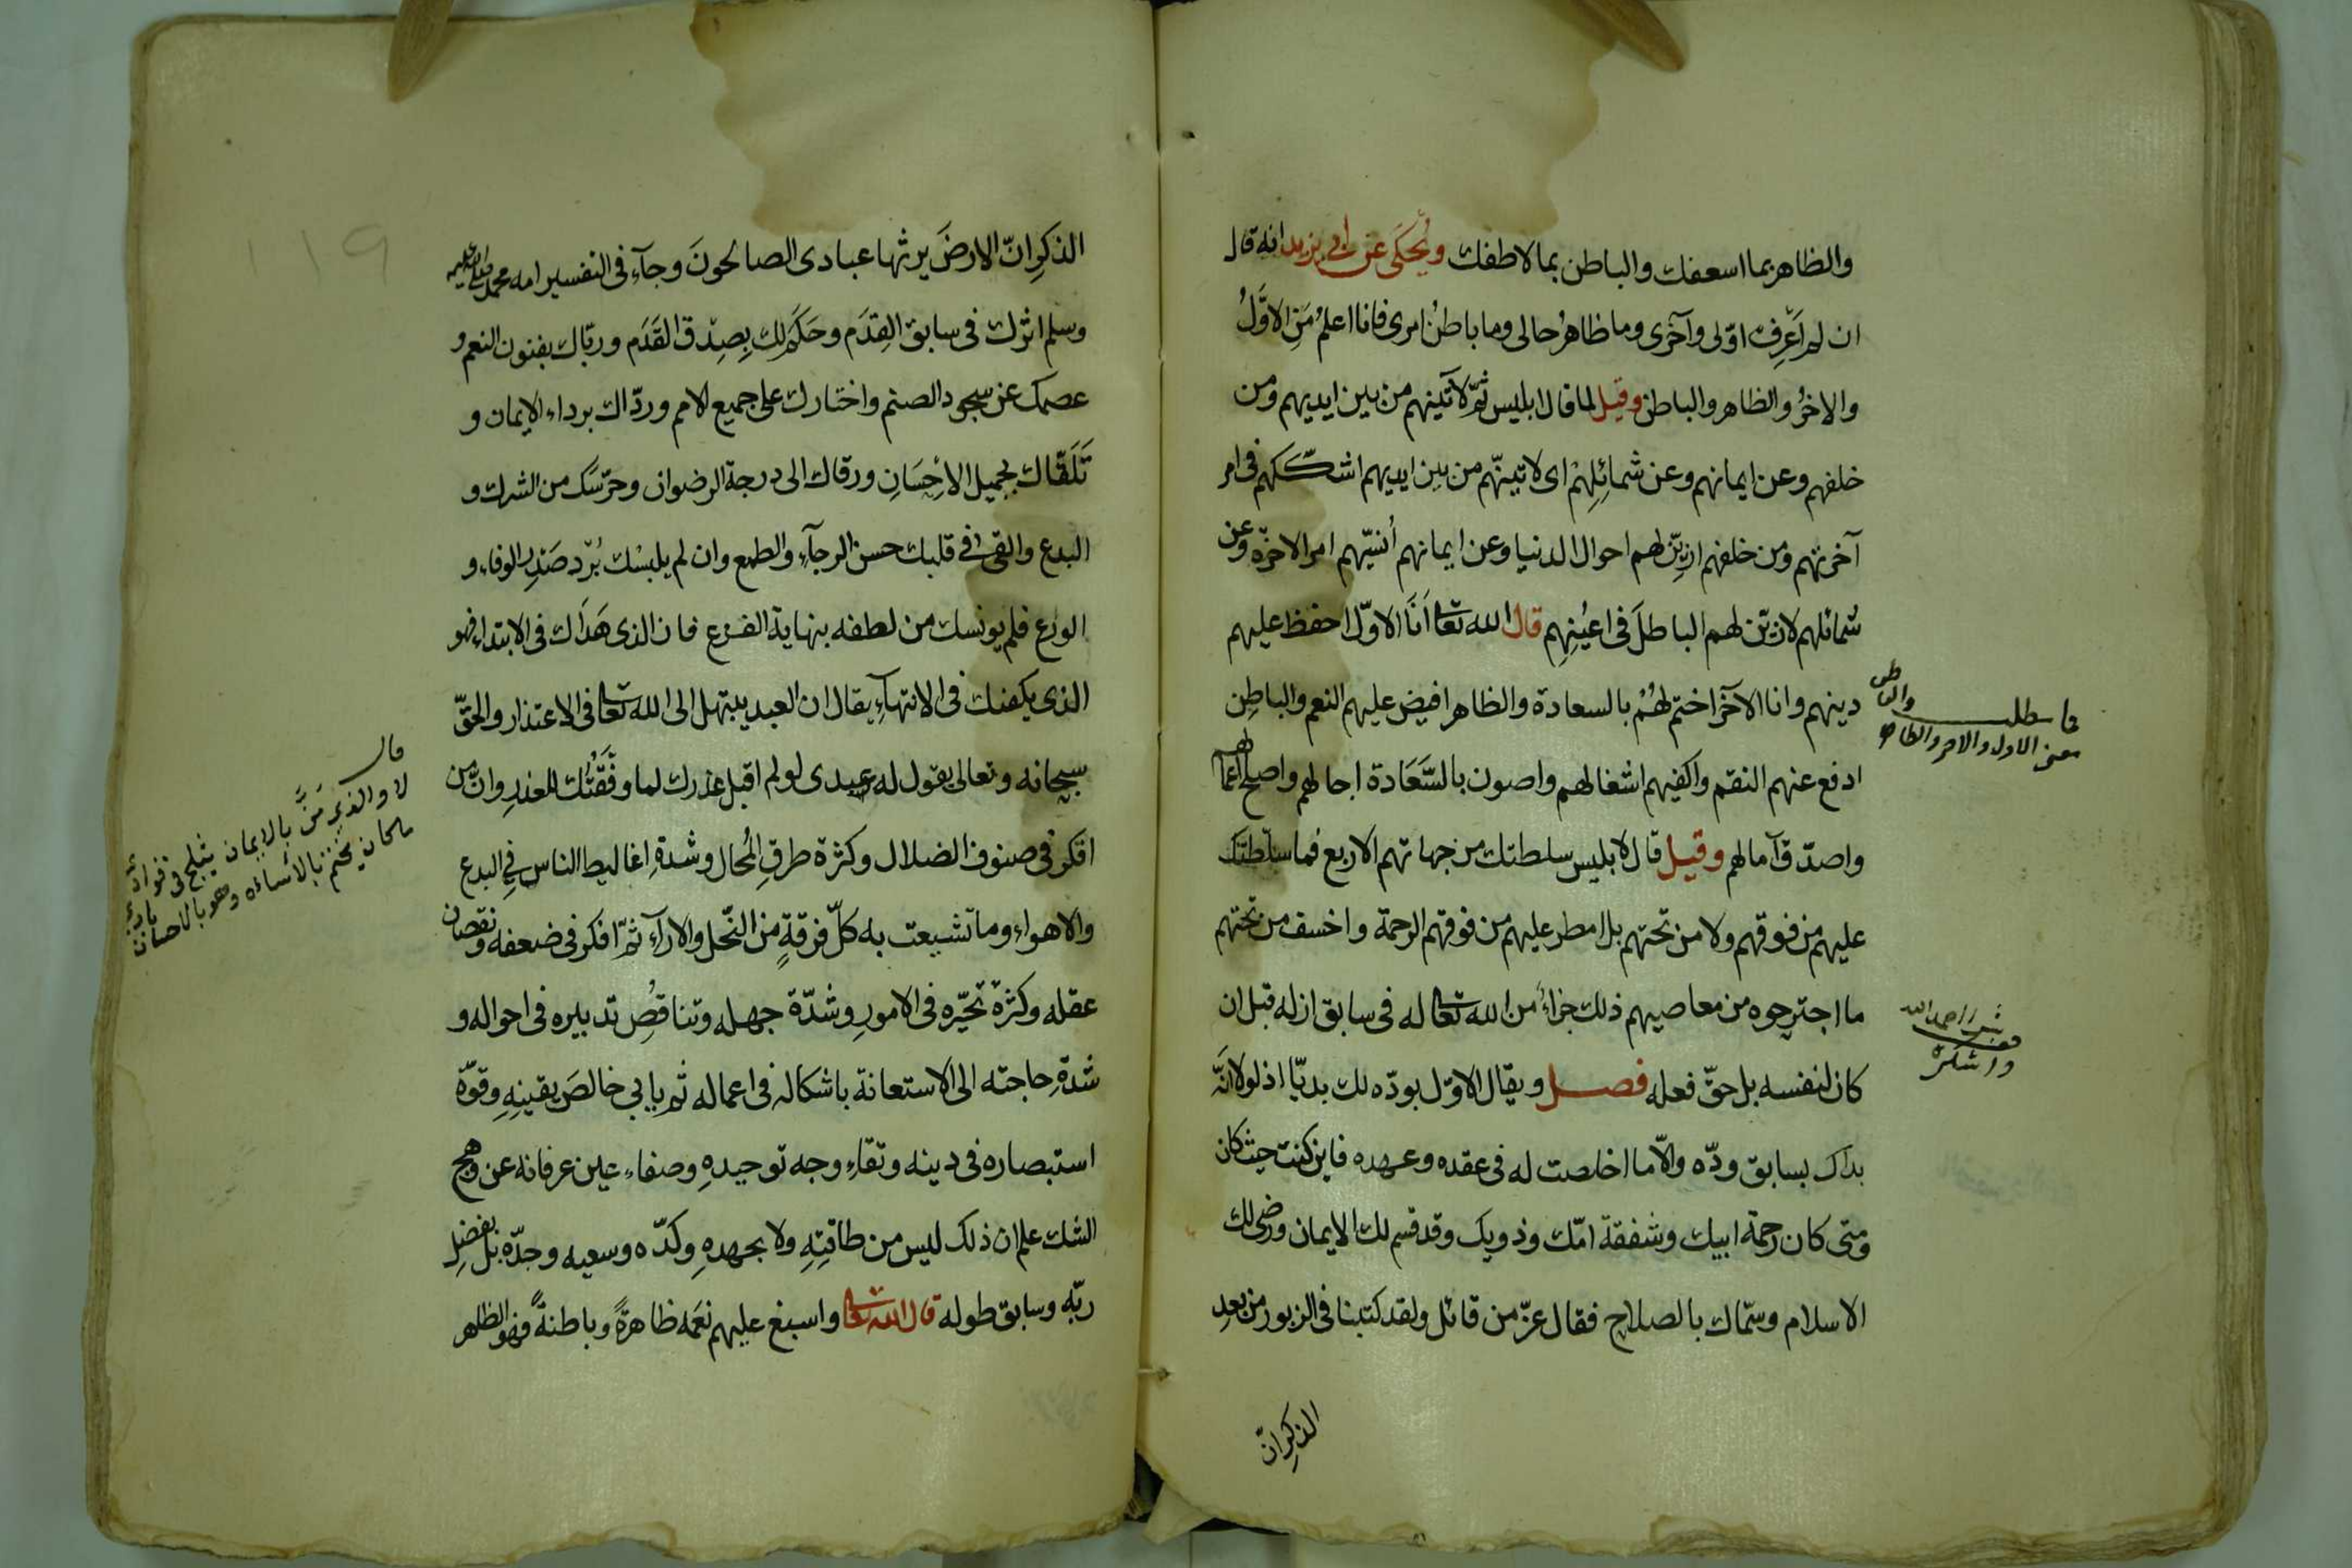 والظاهر بما اسعفك والباطن بما لاطفك ويُحكى عن ابى يزيد انه قال
ان لم اَعْرِف اوّلى وآخرى وما ظاهرُ حالى وما باطنُ امرى فانا اعلمُ مَنِ الاوّلُ
والاخرُ والظاهر والباطن وقيل لما قال ابليس ثمّ لآتينهم من بين ايديهم ومن
خلفهم وعن ايمانهم وعن شمائِلِهِمْ اى لاتينّهم من بين ايديهم اشككهم فى امر
آخرتهم ومن خلفهم ازيّن لهم احوال الدنيا وعن ايمانهم أنسيّهم امر الاخرة وعن
شمائلهم لازيّن لهم الباطلَ فى اعيُنِهِم قال الله تعا اَنَا الاوّل احفظ عليهم
دينهم وانا الآخر اختم لهُمْ بالسعادة والظاهر افيض عليهم النعم والباطِن
ادفع عنهم النقم واكفيهم اشغالهم واصون بالسَّعَادة اجالهم واصلح اعمالهم
واصدّق آمالهم وقيل قال لابليس سلطتك من جهاتهم الاربع فما سلّطتك
عليهم من فوقهم ولا من تحتهم بل امطر عليهم من فوقهم الرحمة واخسف من تحتهم
ما اجترحوه من معاصيهم ذلك جزاءً من الله تعا له فى سابق ازله قبل ان
كان لنفسه بل حقّ فعله فصل ويقال الاوّل بودّه لك بديّا اذ لولا انّه
بداك بسابق ودّه والّا ما اخلصت له فى عقده وعهده فاين كنت حيث كان
ومتى كان رحمة ابيك وشفقة امّك وذويك وقد قسم لك الايمان ورضى لك
الاسلام وسمّاك بالصلاح فقال عزّ من قائل ولقد كتبنا فى الزبور من بعدِ
الذكرِ انّ
معنى الاول والاخر والظاهر
والباطن
الذكرِ انّ الارضَ يرثها عبادى الصالحونَ وجآء فى التفسير امه محمد صلى الله عليه
وسلم اثرك فى سابق القِدَم وحَكَم لك بِصِدْق القَدَم وربّاك بفنون النعم و
عصمك عن سجود الصنم واختارك على جميع الامم وردّاك برداء الايمان و
تَلَقّاك بجميل الاِحْسَانِ ورقاك الى درجة الرضوان وحرّسَك من الشرك و
البدع والقى فى قلبك حسن الرجآءِ والطمع وان لم يلبسْك بُرْد صَدْرِ الوفاءِ و
الورع فلم يونسك من لطفه بنهاية الفزع فان الذى هَدَاك فى الابتداء فهو
الذى يكفيك فى الانتهآءِ يقال ان العبد يبتهل الى الله تعا فى الاعتذار والحقّ
سبحانه وتعالى يقول له عبدى لو لم اقبل عذرك لما وفّقتُك للعذرِ وانّ من
افكر فى صنوف الضلال وكثرة طرقِ المُحال وشدةِ اغاليط الناس فِى البدع
والاهواءِ وما تشيعت به كلّ فرقةٍ من النّحل والارآءِ ثمّ افكر فى ضعفه ونقصان
عقله وكثرة تحيّره فى الامورِ وشدّة جهله وتناقُضِ تدبيره فى احواله و
شدةِ حاجته الى الاستعانة باشكاله فى اعماله ثم يابى خالصَ يقينِهِ وقوّة
استبصاره فى دينه ونقاءِ وجه توحيدهِ وصفاءِ عين عرفانه عن وهج
الشك علم ان ذلك ليس من طاقتِهِ ولا بجهدهِ وكدّه وسعيه وجدّه بل بفضلِ
ربّه وسابق طوله قال الله تعا واسبغ عليهم نعَمَه ظاهرةً وباطنةً فهو الظاهر
قال
لا والذى مَنَّ بالايمان يثلج فى فؤادى
ما كان يختم بالاساءة وهو بالاحسان بادى
١١٩